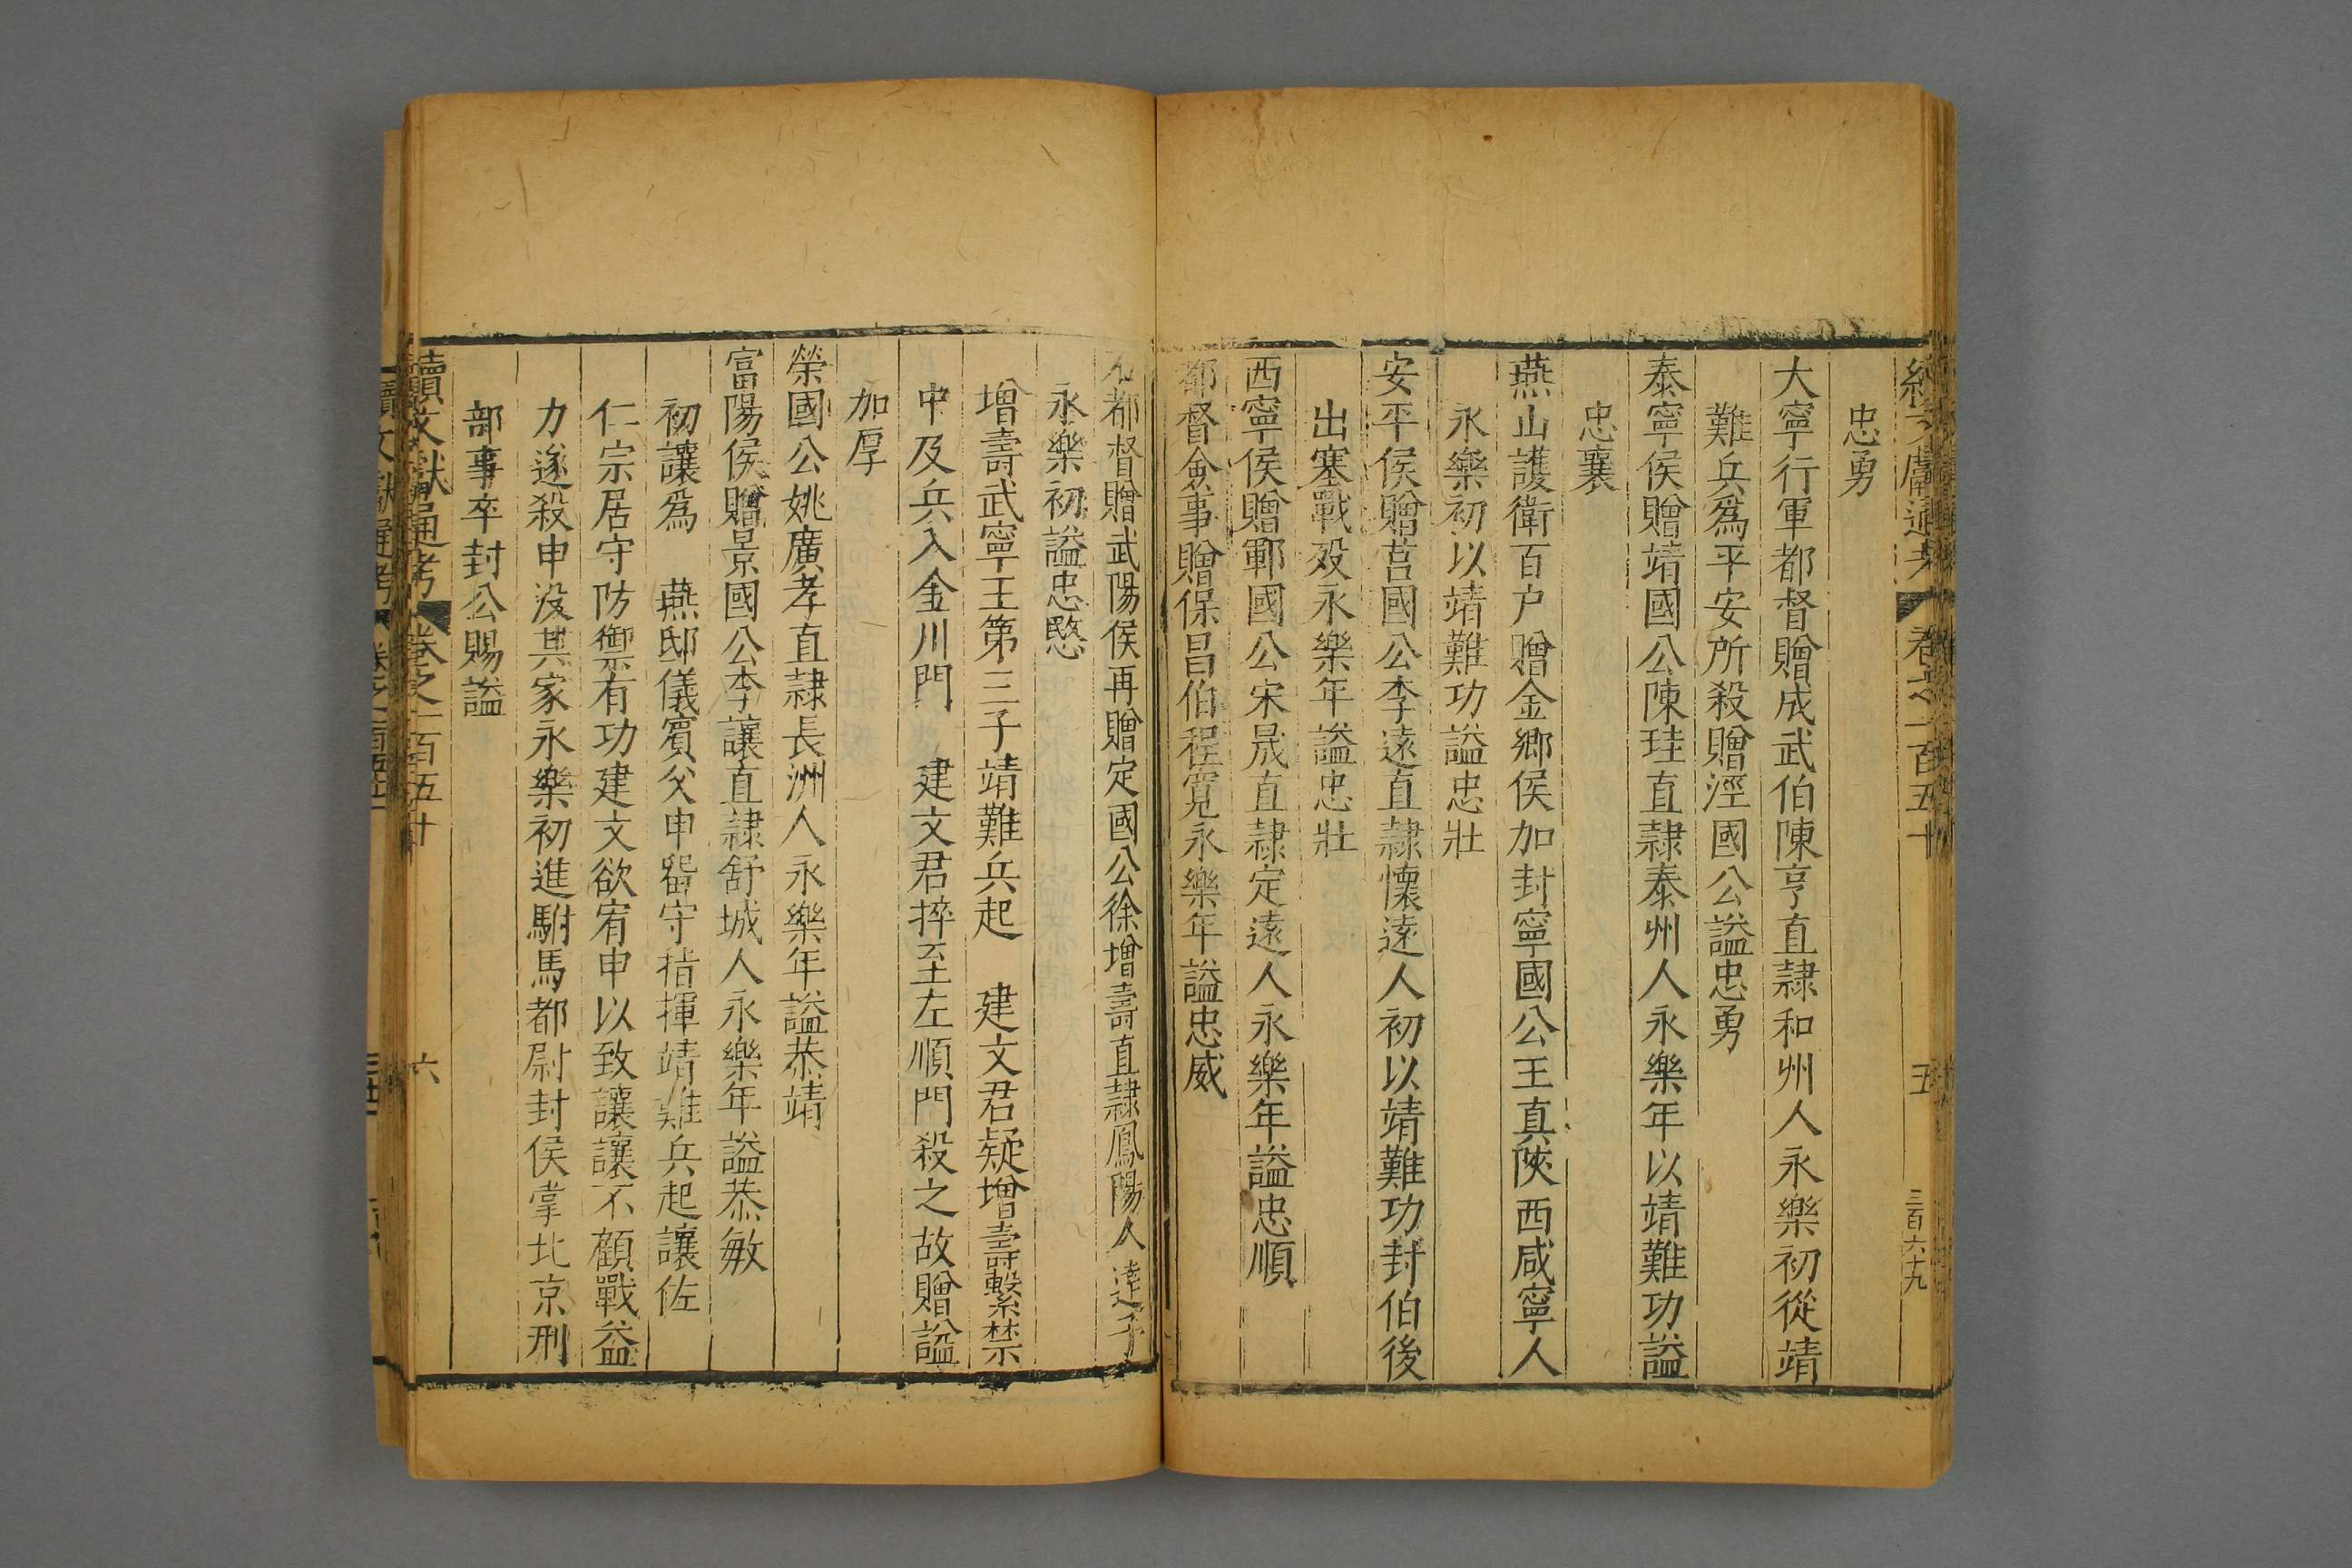 忠勇
大寧行軍都督贈成武伯陳亨直隷和州人永樂初從靖
難兵爲平安所殺贈涇國公謚忠勇
泰寧侯贈靖國公陳珪直隷泰州人永樂年以靖難功謚
忠襄
燕山護衛百户贈金鄉侯加封寧國公王真陝西咸寧人
永樂初以靖難功謚忠壯
安平侯贈莒國公李遠直隷懷遠人初以靖難功封伯後
出塞戰殁永樂年謚忠壯
西寧侯贈鄆國公宋晟直隷定遠人永樂年謚忠順
都督僉事贈保昌伯程寬永樂年謚忠威
都督贈武陽侯再贈定國公徐增壽直隷鳳陽人達子
永樂初謚忠愍
增壽武寧王第三子靖難兵起 建文君疑增壽繫禁
中及兵入金川門 建文君捽至左順門殺之故贈謚
加厚
榮國公姚廣孝直隷長洲人永樂年謚恭靖
富陽侯贈景國公李讓直隷舒城人永樂年謚恭敏
初讓爲 燕邸儀賓父申留守指揮靖難兵起讓佐
仁宗居守防禦有功建文欲宥申以致讓讓不顧戰益
力遂殺申没其家永樂初進駙馬都尉封侯掌北京刑
部事卒封公賜謚
續文獻通考 卷之一百五十 六